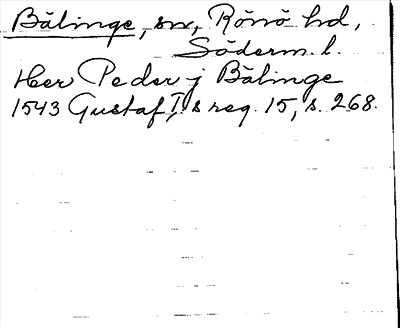 Bälinge, sn, Rönö hd,
Söderm. l.
Her Peder j Bälinge
1543 Gustaf I:s reg. 15, s. 268.